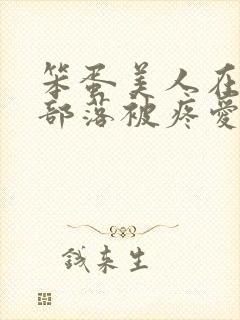 笨蛋美人在
部落被疼爱
钱来生